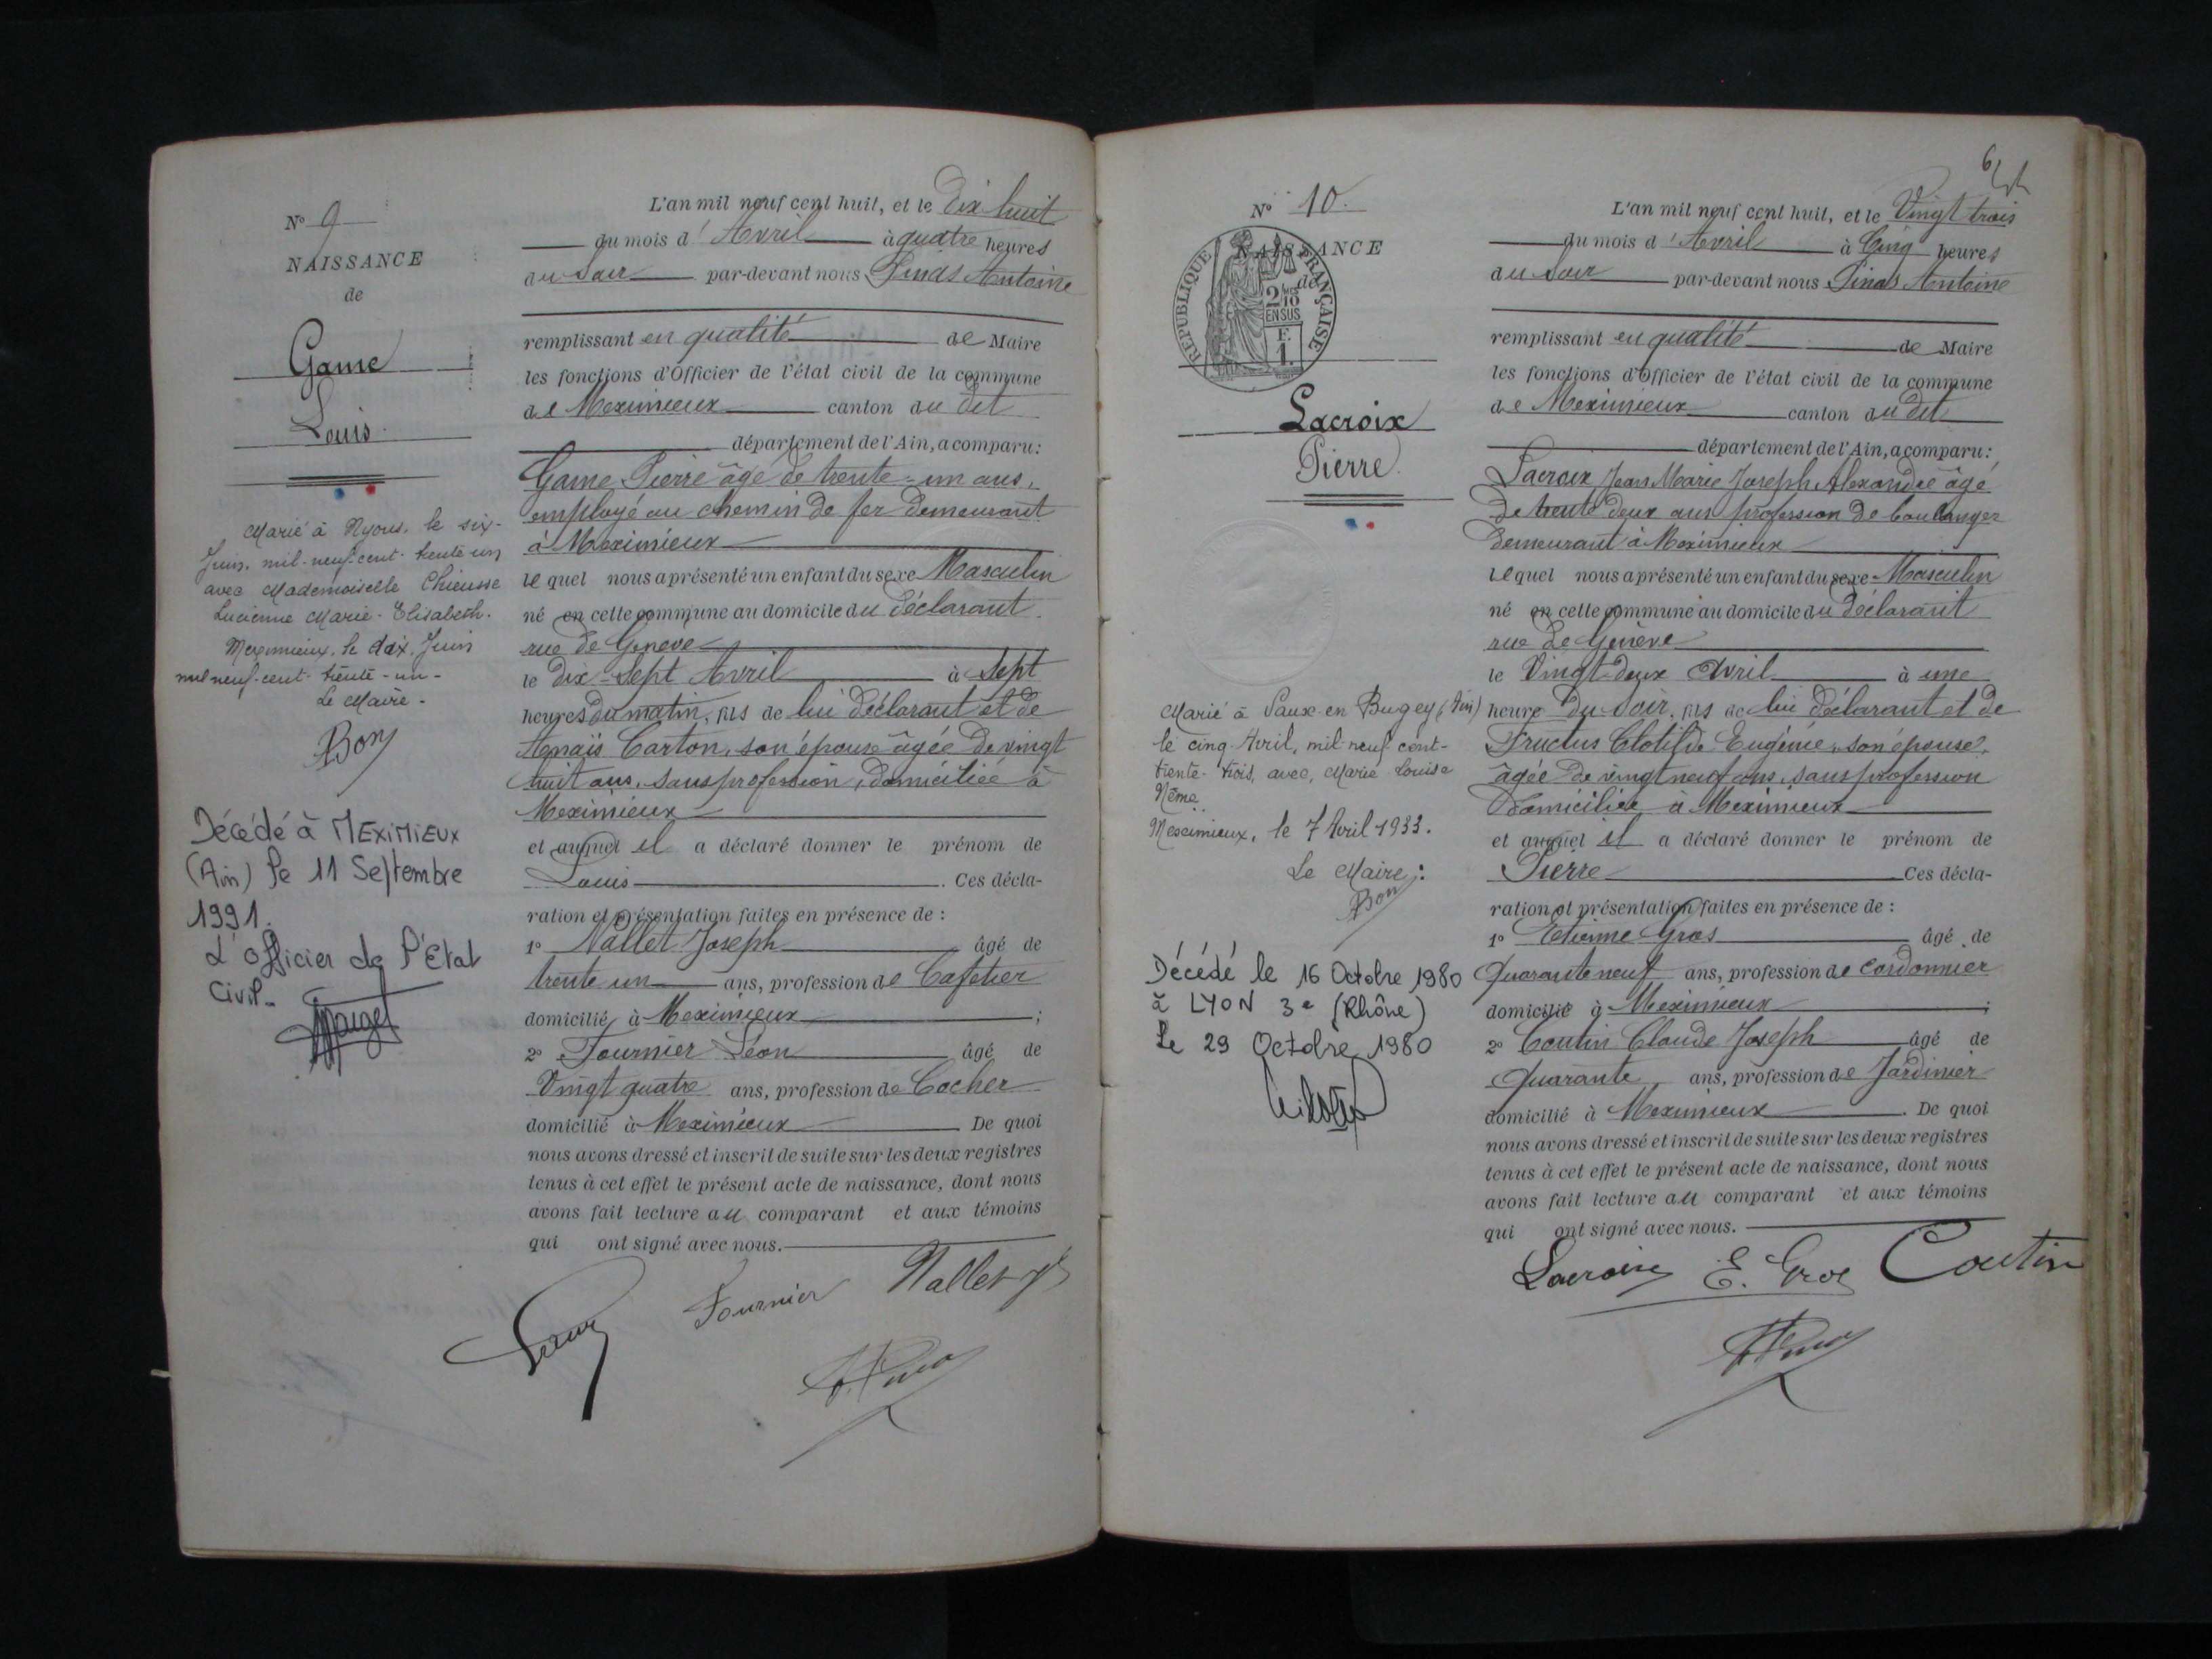 N° 9
NAISSANCE
de
Game
Louis
Marié à Nyons, le six-
Juin, mil-neuf-cent-trente un
avec Mademoiselle Chieusse
Lucienne Marie-Elisabeth.
Meximieux, le dix Juin
mil neuf-cent-trente-un-
Le Maire-
Bon
Décédé à MEXIMIEUX
(Ain) le 11 Septembre
1991.
L'officier de l'Etat
Civil-
L'an mil neuf cent huit, et le Dix huit
du mois d'Avril à quatre heures
du Soir par-devant nous Pinds Antoine
remplissant en qualité de Maire
les fonctions d'Officier de l'état civil de la commune
de Meximieux canton du dit
département de l'Ain, a comparu:
Game Pierre âgé de trente-un ans,
employé au chemin de fer demeurant
à Meximieux
lequel nous a présenté un enfant du sexe Masculin
né en cette commune au domicile du déclarant
rue de Genève
le dix-Sept Avril à Sept
heures du matin, fils de lui déclarant et de
Anaïs Carton, son épouse âgée de vingt
huit ans, sans profession, domiciliée à
Meximieux
et auquel il a déclaré donner le prénom de
Louis. Ces décla-
ration et présentation faites en présence de :
1° Nallet Joseph âgé de
trente un ans, profession de Cafetier
domicilié à Meximieux ;
2° Fournier Léon âgé de
Vingt quatre ans, profession de Cocher
domicilié à Meximieux. De quoi
nous avons dressé et inscrit de suite sur les deux registres
tenus à cet effet le présent acte de naissance, dont nous
avons fait lecture au comparant et aux témoins
qui ont signé avec nous.
Fournier Nallet Jh
N° 10.
NAISSANCE
de
REPUBLIQUE FRANÇAISE
2/10
EN SUS
F.
1.
Lacroix
Pierre
Marié à Vaux-en-Bugey (Ain)
le cinq Avril, mil-neuf cent-
trente-trois, avec, Marie Louise
Nême.
Meximieux, le 7 Avril 1933.
Le Maire :
Bon
Décédé le 16 Octobre 1980
à LYON 3e (Rhône)
Le 29 Octobre 1980
6
L'an mil neuf cent huit, et le Vingt trois
du mois d'Avril à Cinq heures
du Soir par-devant nous Pinds Antoine
remplissant en qualité de Maire
les fonctions d'Officier de l'état civil de la commune
de Meximieux canton du dit
département de l'Ain, a comparu:
Lacroix Jean Marie Joseph Alexandre âgé
De trente deux ans profession de boulanger
demeurant à Meximieux
lequel nous a présenté un enfant du sexe Masculin
né en cette commune au domicile du déclarant
rue de Genève
le Vingt-deux Avril à une
heure du Soir, fils de lui déclarant et de
Fructus Clotilde Eugénie, son épouse,
âgée de vingt neuf ans, sans profession
Domiciliée à Meximieux
et auquel il a déclaré donner le prénom de
Pierre Ces décla-
ration et présentation faites en présence de :
1° Etienne Gros âgé de
Quarante neuf ans, profession de Cordonnier
domicilié à Meximieux ;
2° Coutin Claude Joseph âgé de
Quarante ans, profession de Jardinier
domicilié à Meximieux. De quoi
nous avons dressé et inscrit de suite sur les deux registres
tenus à cet effet le présent acte de naissance, dont nous
avons fait lecture au comparant et aux témoins
qui ont signé avec nous.
Lacroix E. Gros Coutin